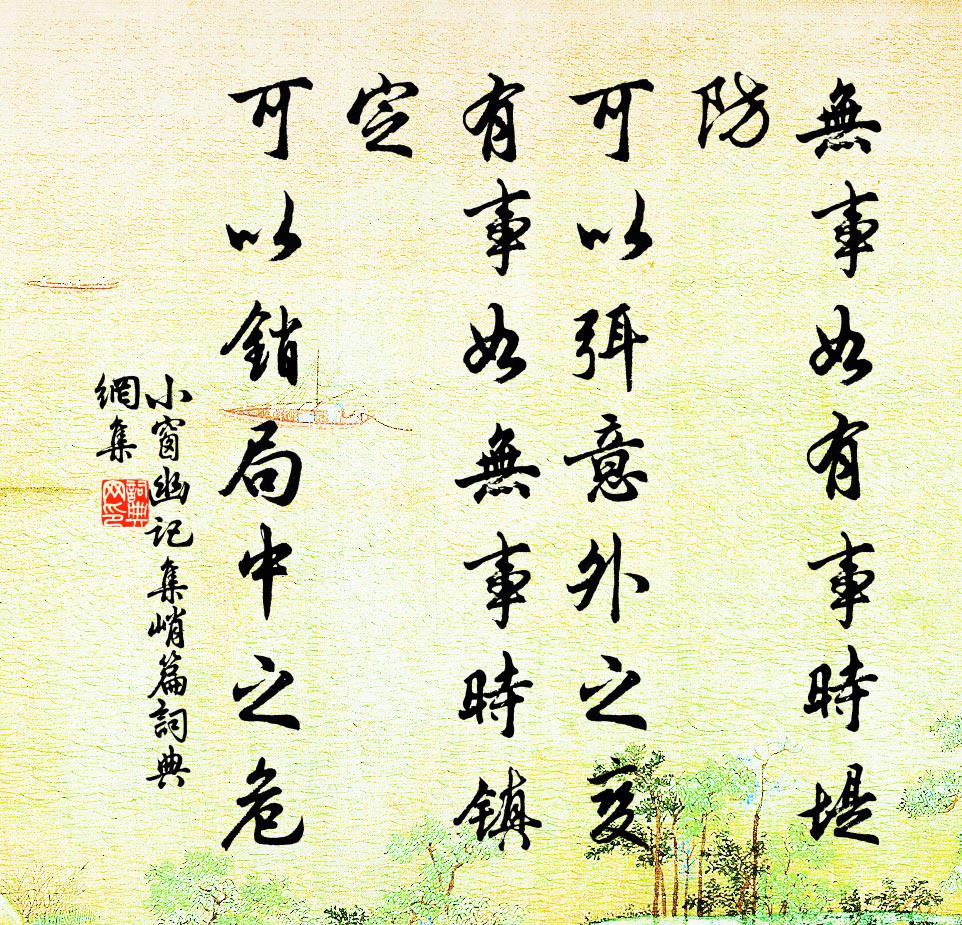 無事如有事時堤
防
可以弭意外之変
有事如無事時鎮
定
可以銷局中之危
小窗幽记集峭篇詞典
網集
詞典
网印